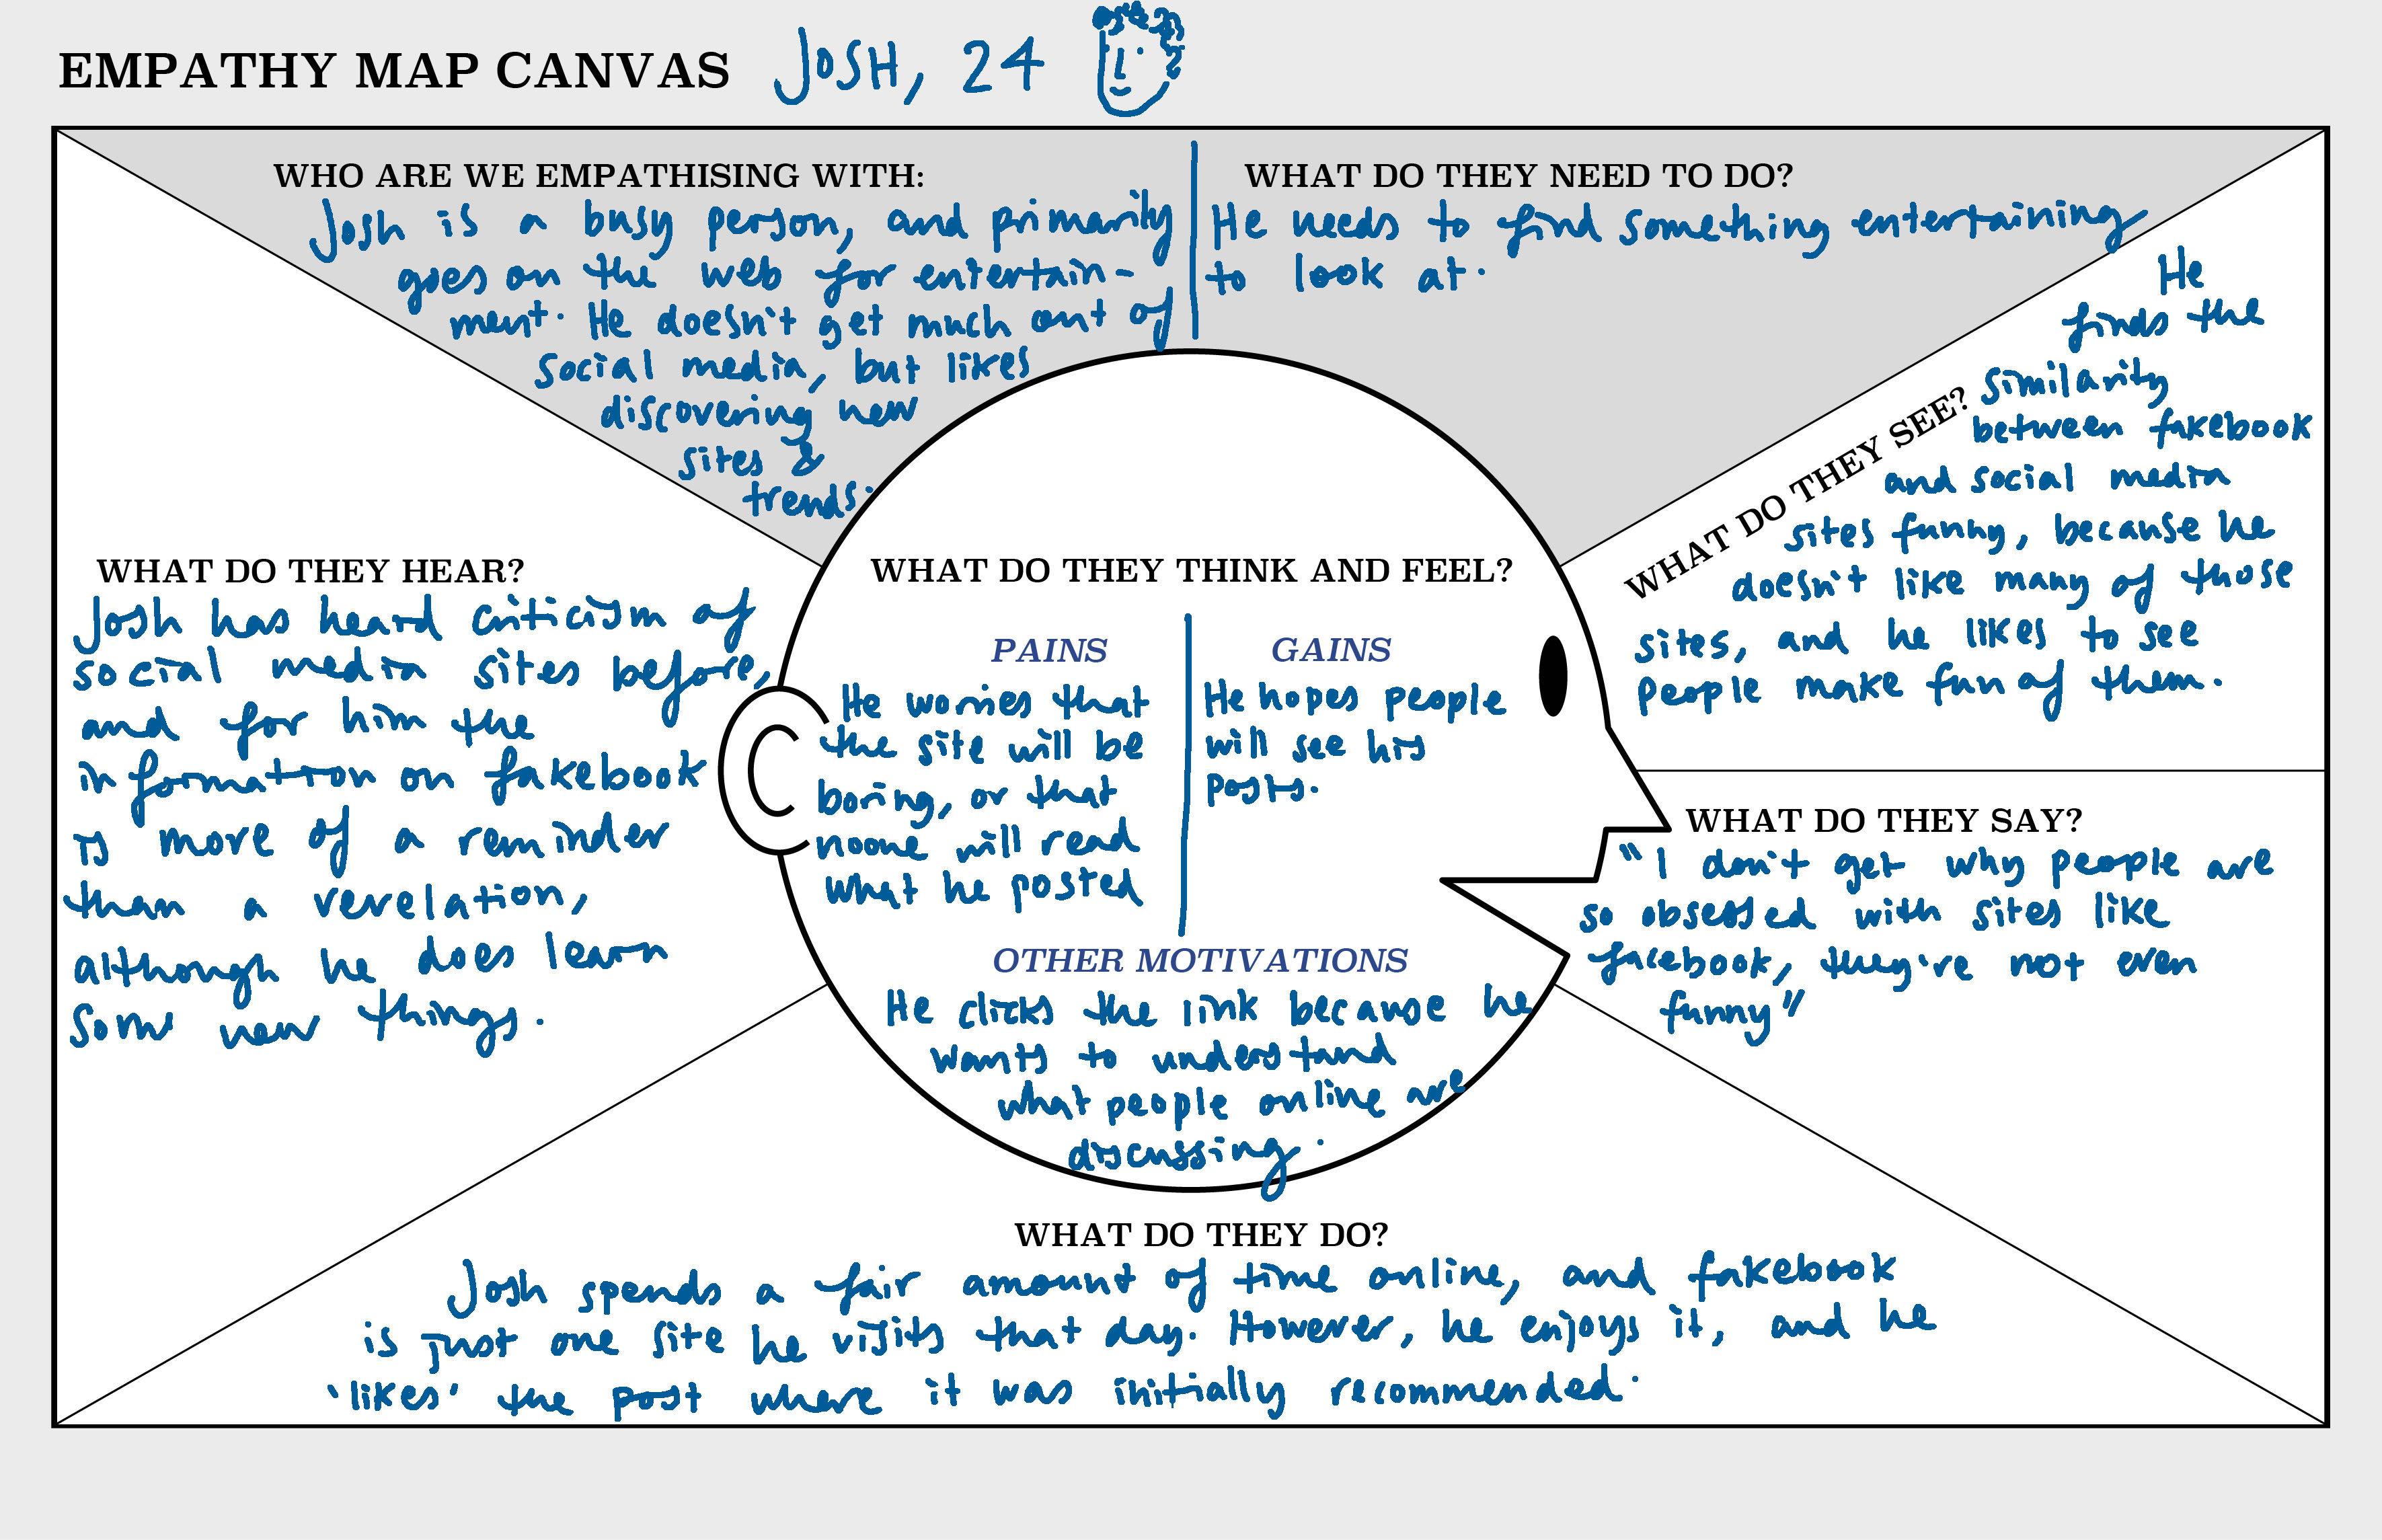 EMPATHY MAP CANVAS JOSH, 24
WHO ARE WE EMPATHISING WITH:
Josh is a busy person, and primarily
goes on the web for entertain-
ment. He doesn't get much out of
social media, but likes
discovering new
sites &
trends.
WHAT DO THEY NEED TO DO?
He needs to find something entertaining
to look at.
WHAT DO THEY SEE?
He
finds the
similarity
between fakebook
and social media
sites funny, because he
doesn't like many of those
sites, and he likes to see
people make fun of them.
WHAT DO THEY HEAR?
Josh has heard criticism of
social media sites before,
and for him the
information on fakebook
is more of a reminder
than a revelation,
although he does learn
some new things.
WHAT DO THEY THINK AND FEEL?
PAINS
He worries that
the site will be
boring, or that
noone will read
what he posted
GAINS
He hopes people
will see his
posts.
OTHER MOTIVATIONS
He clicks the link because he
wants to understand
what people online are
discussing.
WHAT DO THEY SAY?
"I don't get why people are
so obsessed with sites like
facebook, they're not even
funny"
WHAT DO THEY DO?
Josh spends a fair amount of time online, and fakebook
is just one site he visits that day. However, he enjoys it, and he
'likes' the post where it was initially recommended.